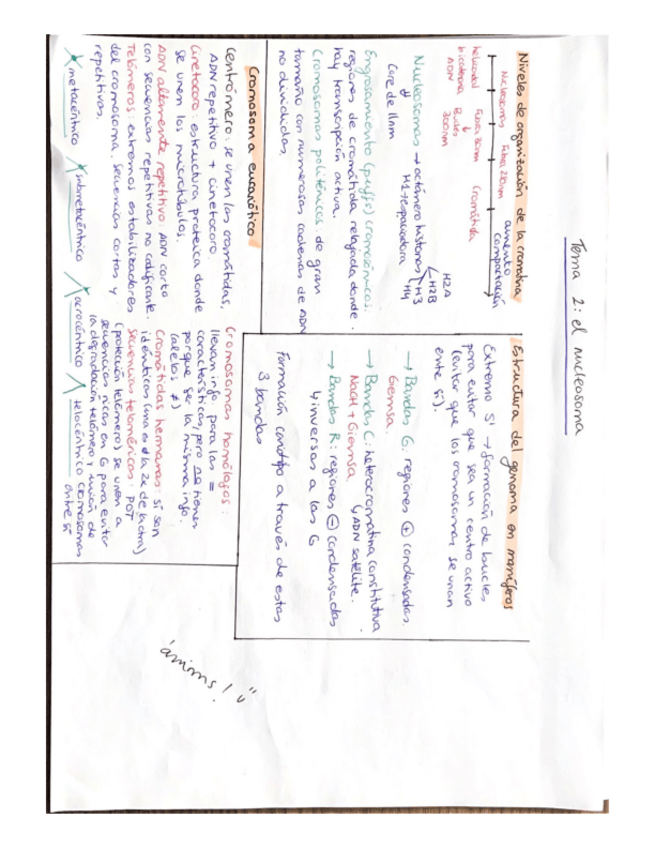 Tema 2: el nucleosoma
Niveles de organización de la cromatina
aumento
compactación
Nucleosomas Fibra 30nm
helicoidal Fibra 30nm Cromátida
bicatenaria Bucles
ADN 300nm
Nucleosomas → octámero histonas
H2A
H2B
H3
H4
Core de 11nm H1 espaciadora
Engrosamiento (puffs) cromosómicos:
regiones de cromátida relajada donde
hay transcripción activa.
Cromosomas politénicos: de gran
tamaño con numerosas cadenas de ADN
no divididas.
Estructura del genoma en mamíferos
Extremo 5' → formación de bucles
para evitar que sea un centro activo
(evitar que los cromosomas se unan
entre sí).
→ Bandas G: regiones + condensadas.
Giemsa.
→ Bandas C: heterocromatina constitutiva.
NaOH + Giemsa ↳ ADN satélite.
→ Bandas R: regiones - condensadas
↳ inversas a las G
Formación cariotipo a través de estas
3 bandas
Cromosoma eucariótico
Centrómero: se unen las cromátidas,
ADN repetitivo + cinetocoro.
Cinetocoro: estructura proteica donde
se unen los microtúbulos.
ADN altamente repetitivo: ADN corto
con secuencias repetitivas no codificante.
Telómeros: extremos estabilizadores
del cromosoma. Secuencias cortas y
repetitivas.
Cromosomas homólogos:
llevan info para las =
características, pero no tienen
porque ser la misma info.
(alelos ≠)
Cromátidas hermanas: sí son
idénticas (una es la 2x de la otra)
Secuencias teloméricas: POT
(protección telómero) se unen a
secuencias ricas en G para evitar
la degradación telómero y unión de
cromosomas
entre sí
metacéntrico submetacéntrico acrocéntrico telocéntrico
ánimos! ü